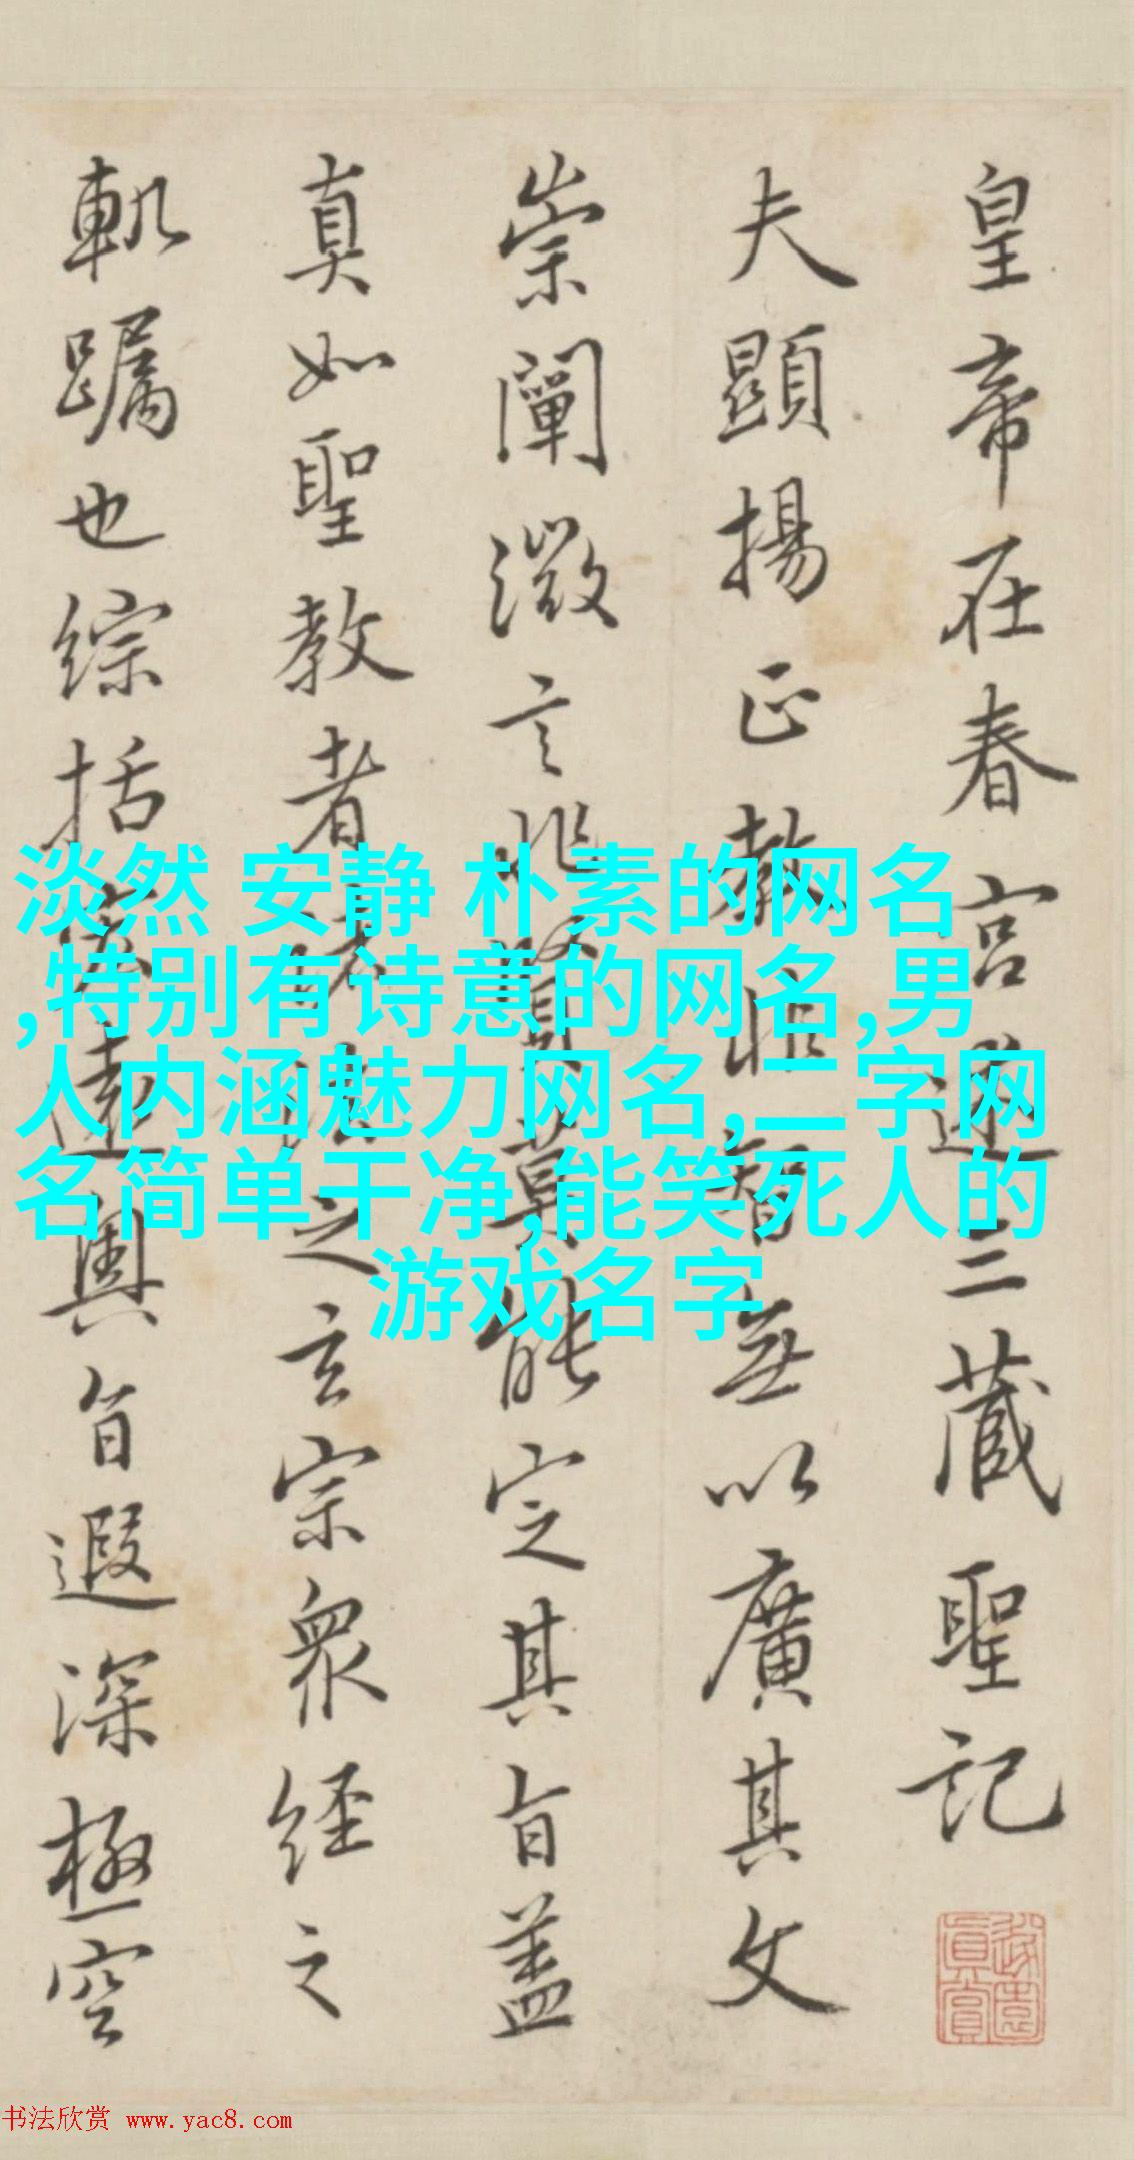 皇帝在春宮述三藏聖記
夫顯揚正教非智無以廣其文
崇闡微言非賢莫能定其旨蓋
真如聖教者諸法之玄宗眾經之
軌躅也綜括宏遠奧旨遐深極空
淡然 安静 朴素的网名
,特别有诗意的网名,男
人内涵魅力网名,二字网
名简单干净,能笑死人的
游戏名字
书法欣赏 www.yac8.com